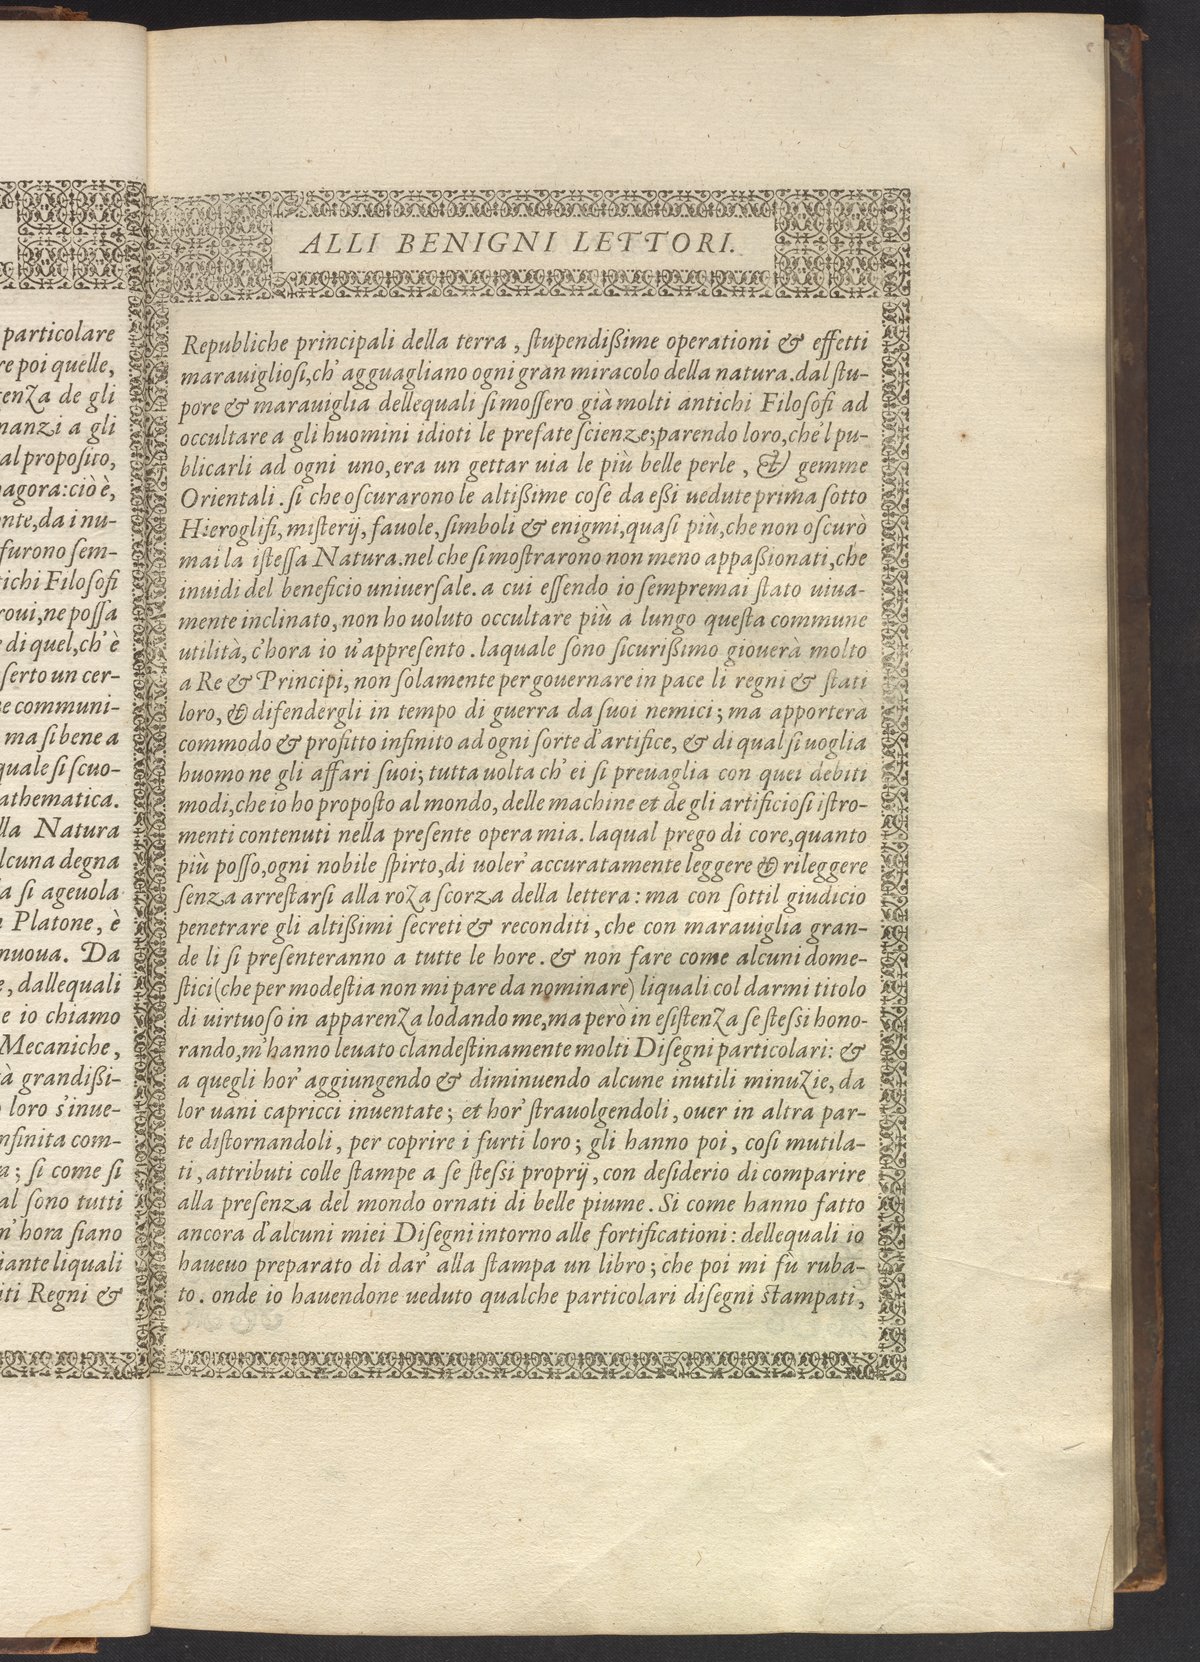 particolare
re poi quelle,
tenza de gli
nanzi a gli
al propoſito,
agora: ciò è,
nte, da i nu-
furono ſem-
tichi Filoſofi
roui, ne poſſa
e di quel, ch' è
ſerto un cer-
e communi-
ma ſi bene a
quale ſi ſcuo-
athematica.
lla Natura
lcuna degna
la ſi ageuola
n Platone, è
nuoua. Da
e, dallequali
e io chiamo
Mecaniche,
à grandißi-
o loro s'inue-
nfinita com-
a; ſi come ſi
al ſono tutti
m' hora ſiano
iante liquali
iti Regni &
ALLI BENIGNI LETTORI.
Republiche principali della terra, ſtupendißime operationi & effetti
marauiglioſi, ch' agguagliano ogni gran miracolo della natura. dal ſtu-
pore & marauiglia dellequali ſi moſſero già molti antichi Filoſofi ad
occultare a gli huomini idioti le prefate ſcienze; parendo loro, che'l pu-
blicarli ad ogni uno, era un gettar uia le più belle perle, & gemme
Orientali. ſi che oſcurarono le altißime coſe da eßi uedute prima ſotto
Hieroglifi, miſterij, fauole, ſimboli & enigmi, quaſi più, che non oſcurò
mai la iſteſſa Natura. nel che ſi moſtrarono non meno appaßionati, che
inuidi del beneficio uniuerſale. a cui eſſendo io ſempremai ſtato uiua-
mente inclinato, non ho uoluto occultare più a lungo queſta commune
utilità, c'hora io u'appreſento. laquale ſono ſicurißimo giouerà molto
a Re & Principi, non ſolamente per gouernare in pace li regni & ſtati
loro, & difendergli in tempo di guerra da ſuoi nemici; ma apportera
commodo & profitto infinito ad ogni ſorte d'artifice, & di qual ſi uoglia
huomo ne gli affari ſuoi; tutta uolta ch' ei ſi preuaglia con quei debiti
modi, che io ho propoſto al mondo, delle machine et de gli artificioſi iſtro-
menti contenuti nella preſente opera mia. laqual prego di core, quanto
più poſſo, ogni nobile ſpirto, di uoler' accuratamente leggere & rileggere
ſenza arreſtarſi alla roza ſcorza della lettera: ma con ſottil giudicio
penetrare gli altißimi ſecreti & reconditi, che con marauiglia gran-
de li ſi preſenteranno a tutte le hore. & non fare come alcuni dome-
ſtici (che per modeſtia non mi pare da nominare) liquali col darmi titolo
di uirtuoſo in apparenza lodando me, ma però in eſiſtenza ſe ſteſſi hono-
rando, m'hanno leuato clandeſtinamente molti Diſegni particolari: &
a quegli hor' aggiungendo & diminuendo alcune inutili minuzie, da
lor uani capricci inuentate; et hor' ſtrauolgendoli, ouer in altra par-
te diſtornandoli, per coprire i furti loro; gli hanno poi, coſi mutila-
ti, attributi colle ſtampe a ſe ſteſſi proprij, con deſiderio di comparire
alla preſenza del mondo ornati di belle piume. Si come hanno fatto
ancora d'alcuni miei Diſegni intorno alle fortificationi: dellequali io
haueuo preparato di dar' alla ſtampa un libro; che poi mi fù ruba-
to. onde io hauendone ueduto qualche particolari diſegni ſtampati,